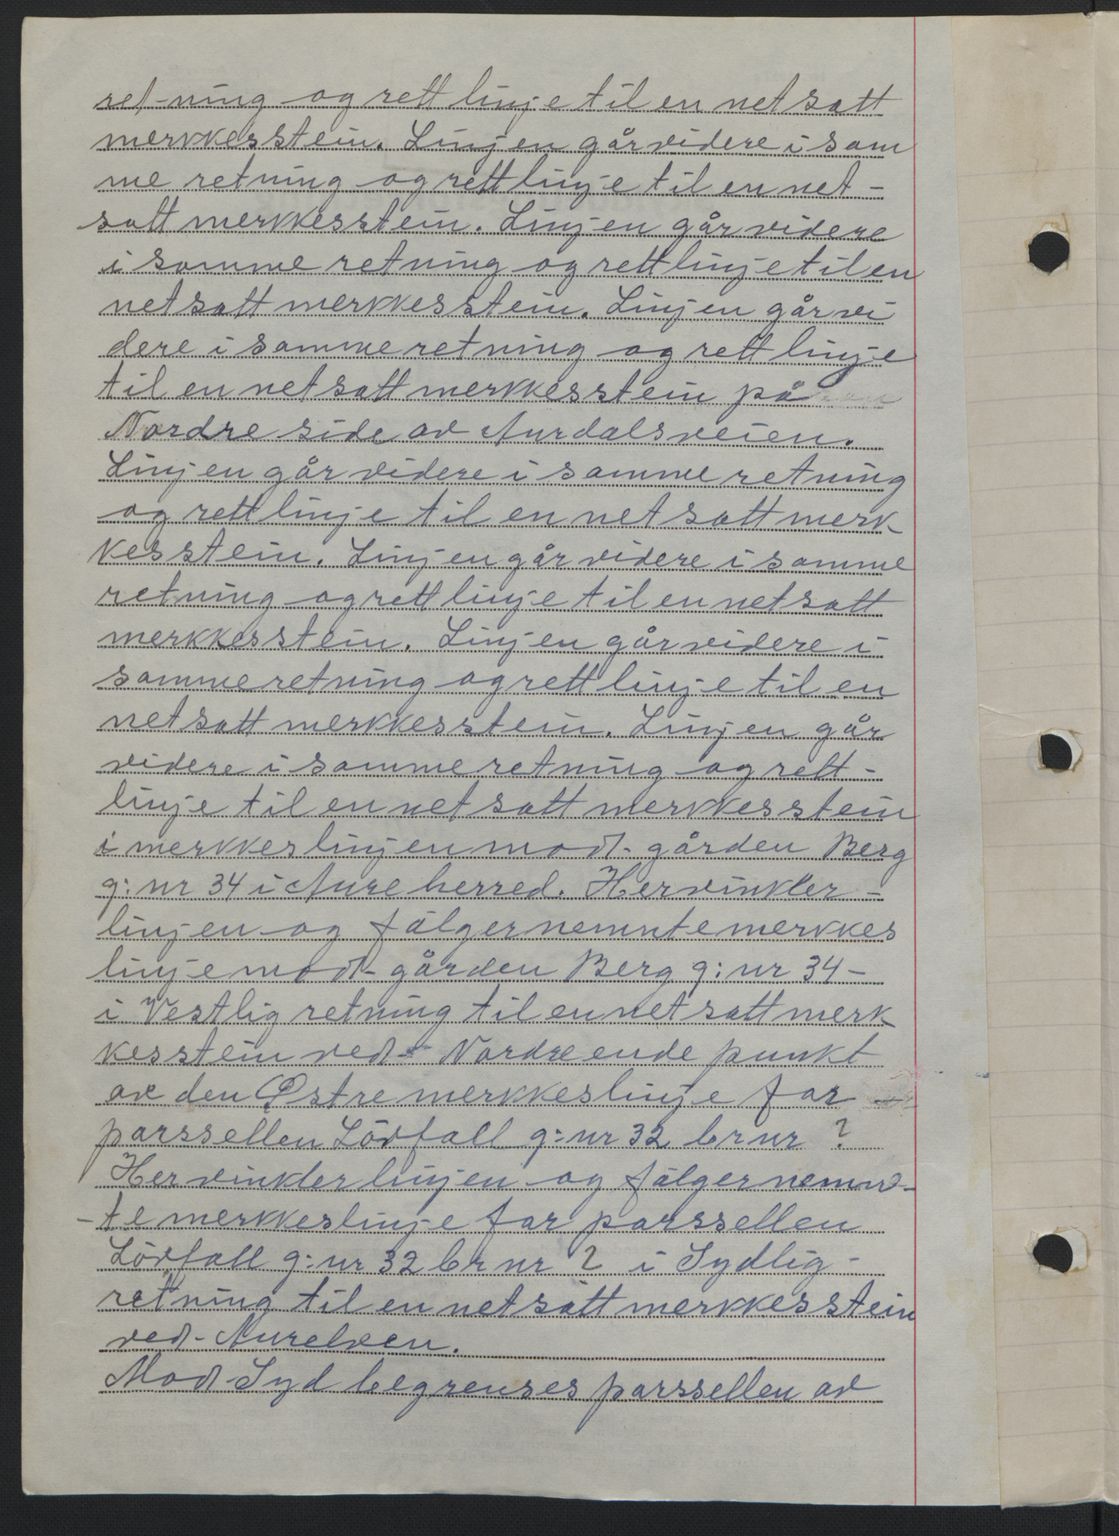 ret-ning og rett linje til en netsatt
merkkesstein. Linjen går videre i sam
me retning og rett linje til en net-
satt merkkesstein. Linjen går videre
i samme retning og rett linje til en
netsatt merkkesstein. Linjen går vi
dere i samme retning og rett linje
til en netsatt merkkesstein på
Nordre side av Aurdalsveien.
Linjen går videre i samme retning
og rett linje til en netsatt merk
kesstein. Linjen går videre i samme
retning og rett linje til en netsatt
merkkesstein. Linjen går videre i
samme retning og rett linje til en
netsatt merkkesstein. Linjen går
videre i samme retning og rett-
linje til en netsatt merkkesstein
i merkkeslinjen mod- gården Berg
g: nr 34 i Aure herred. Her vinkler-
linjen og fölger nemnte merkkes
linje mod- gården Berg g: nr 34-
i Vestlig retning til en netsatt merk
kesstein ved- Nordre ende punkt
av den Östre merkkeslinje for
parssellen Lövfall g: nr 32 br nr 2
Her vinkler linjen og fölger nemn-
-te merkkeslinje for parssellen
Lövfall g: nr 32 br nr 2 i Sydlig-
retning til en netsatt merkkesstein
ved- Aurelven.
Mod Syd begrenses parssellen av